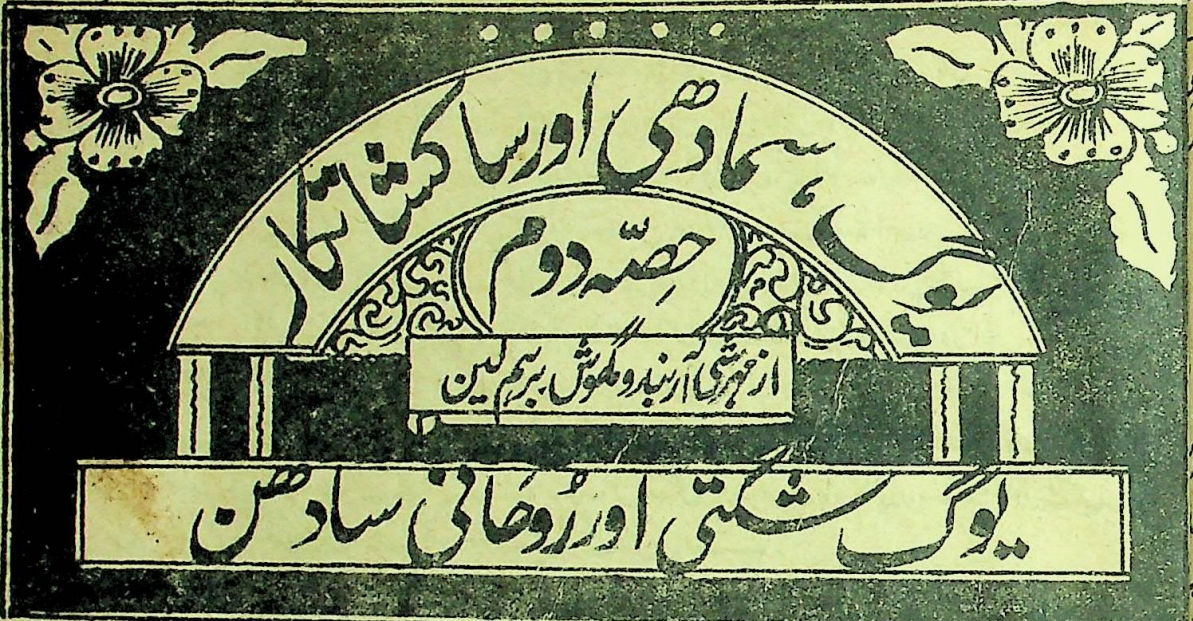 یوگ، سمادھی اور ساکشاتکار
حصّہ دوم
از مہرشی آربندو گھوش برہم لین
یوگ شکتی اور رُوحانی سادھن